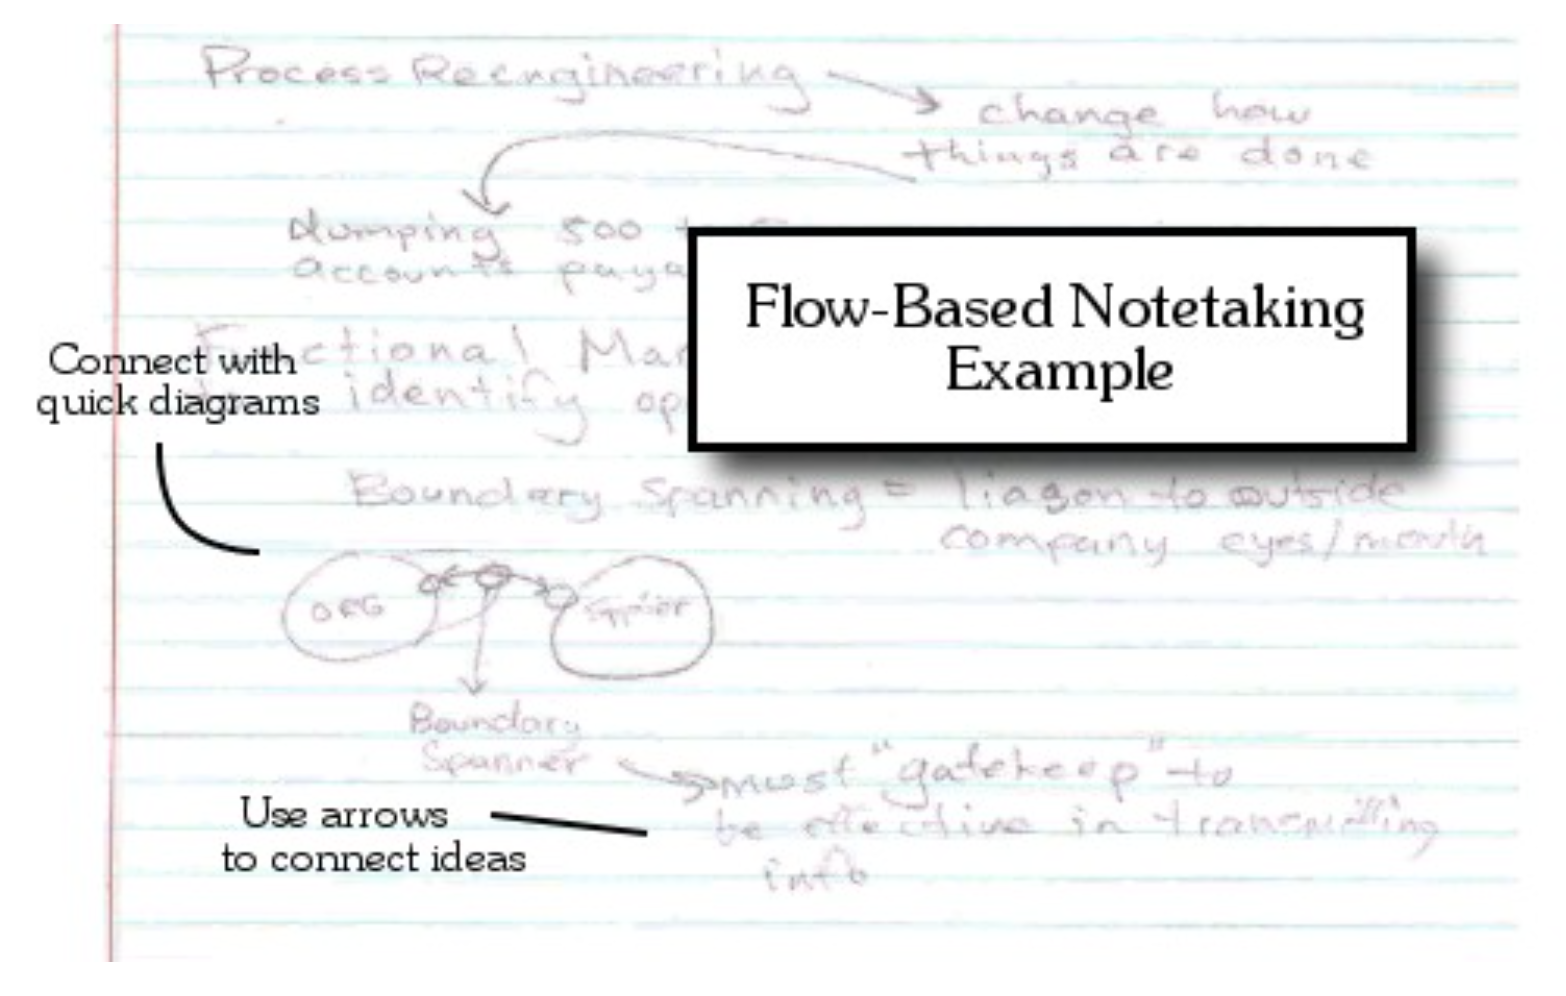 Process Reengineering
change how
things are done
dumping 500
accounts
Flow-Based Notetaking
Example
Connect with
quick diagrams
identify
Boundary Spanning = liason to outside
company eyes/mouth
ORG
Supplier
Boundary
Spanner
must "gatekeep" to
be effective in transmitting
info
Use arrows
to connect ideas